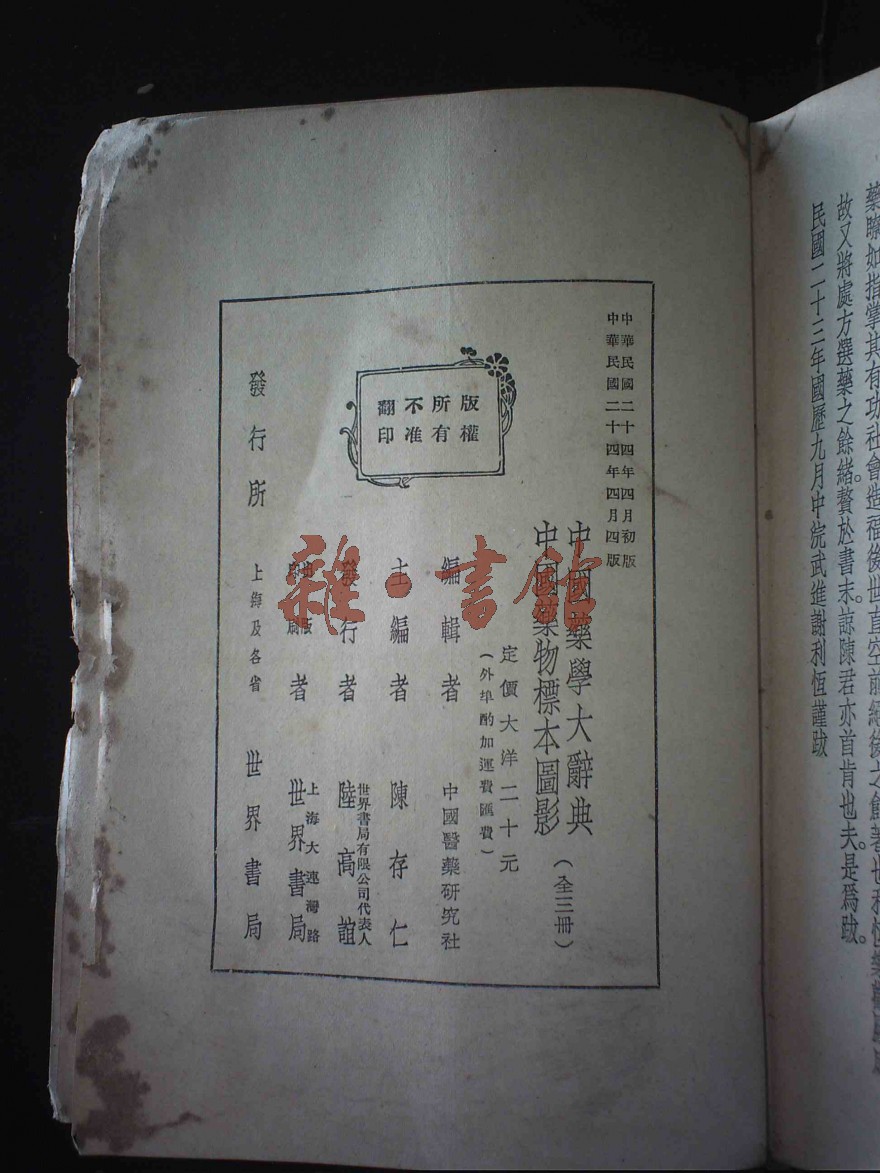 藥瞭如指掌其有功社會造福後世直空前絕後之鉅著也利恆
故又將處方選藥之餘緒。贅於書末。諒陳君亦首肯也夫。是爲跋。
民國二十三年國歷九月中浣武進謝利恆謹跋
中華民國二十四年四月初版
中華民國二十四年四月四版
中國藥學大辭典
中國藥物標本圖影
(全三冊)
定價大洋二十元
(外埠酌加運費匯費)
版權
所有
不准
翻印
編輯者 中國醫藥研究社
主編者 陳存仁
發行者 世界書局有限公司代表人 陸高誼
出版印刷者 上海大連灣路 世界書局
發行所 上海及各省 世界書局
雜·書館